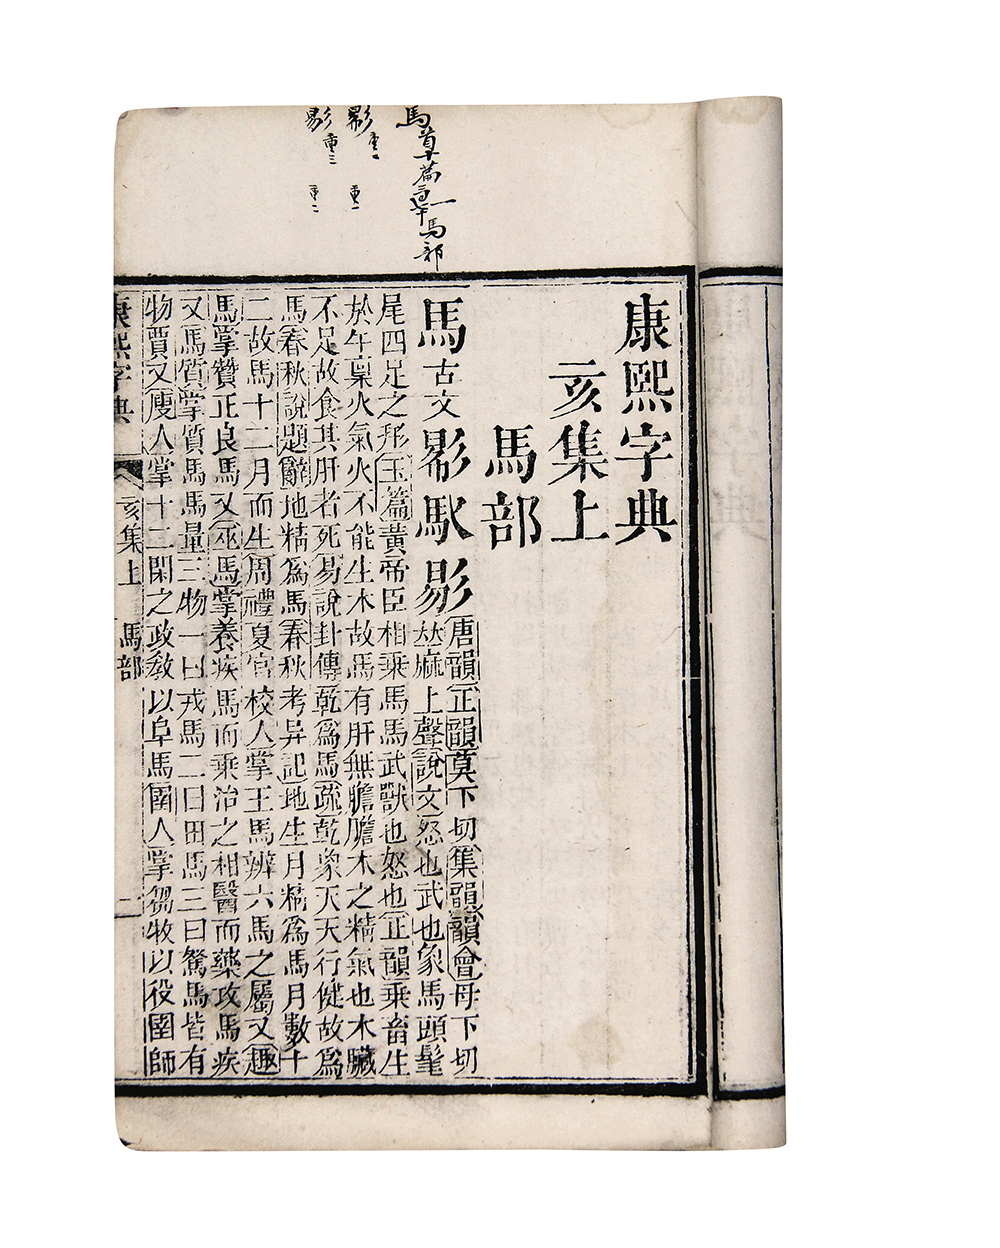 馬首十篇
馬部
康熙字典
亥集上
馬部
馬古文𢒠𩡬𢒗
唐韻正韻莫下切集韻韻會母下切
𠀤麻上聲說文怒也武也象馬頭髦
尾四足之形玉篇黃帝臣相乘馬馬武獸也怒也正韻乘畜生
於午稟火氣火不能生木故馬有肝無膽膽木之精氣也木臟
不足故食其肝者死易說卦傳乾爲馬疏乾象天天行健故爲
馬春秋說題辭地精爲馬春秋考异記地生月精爲馬月數十
二故馬十二月而生周禮夏官校人掌王馬辨六馬之屬又趣
馬掌贊正良馬又巫馬掌養疾馬而乘治之相醫而藥攻馬疾
又馬質掌質馬馬量三物一曰戎馬二曰田馬三曰駑馬皆有
物賈又廋人掌十二閑之政敎以阜馬圉人掌芻牧以役圉師
康熙字典 亥集上 馬部